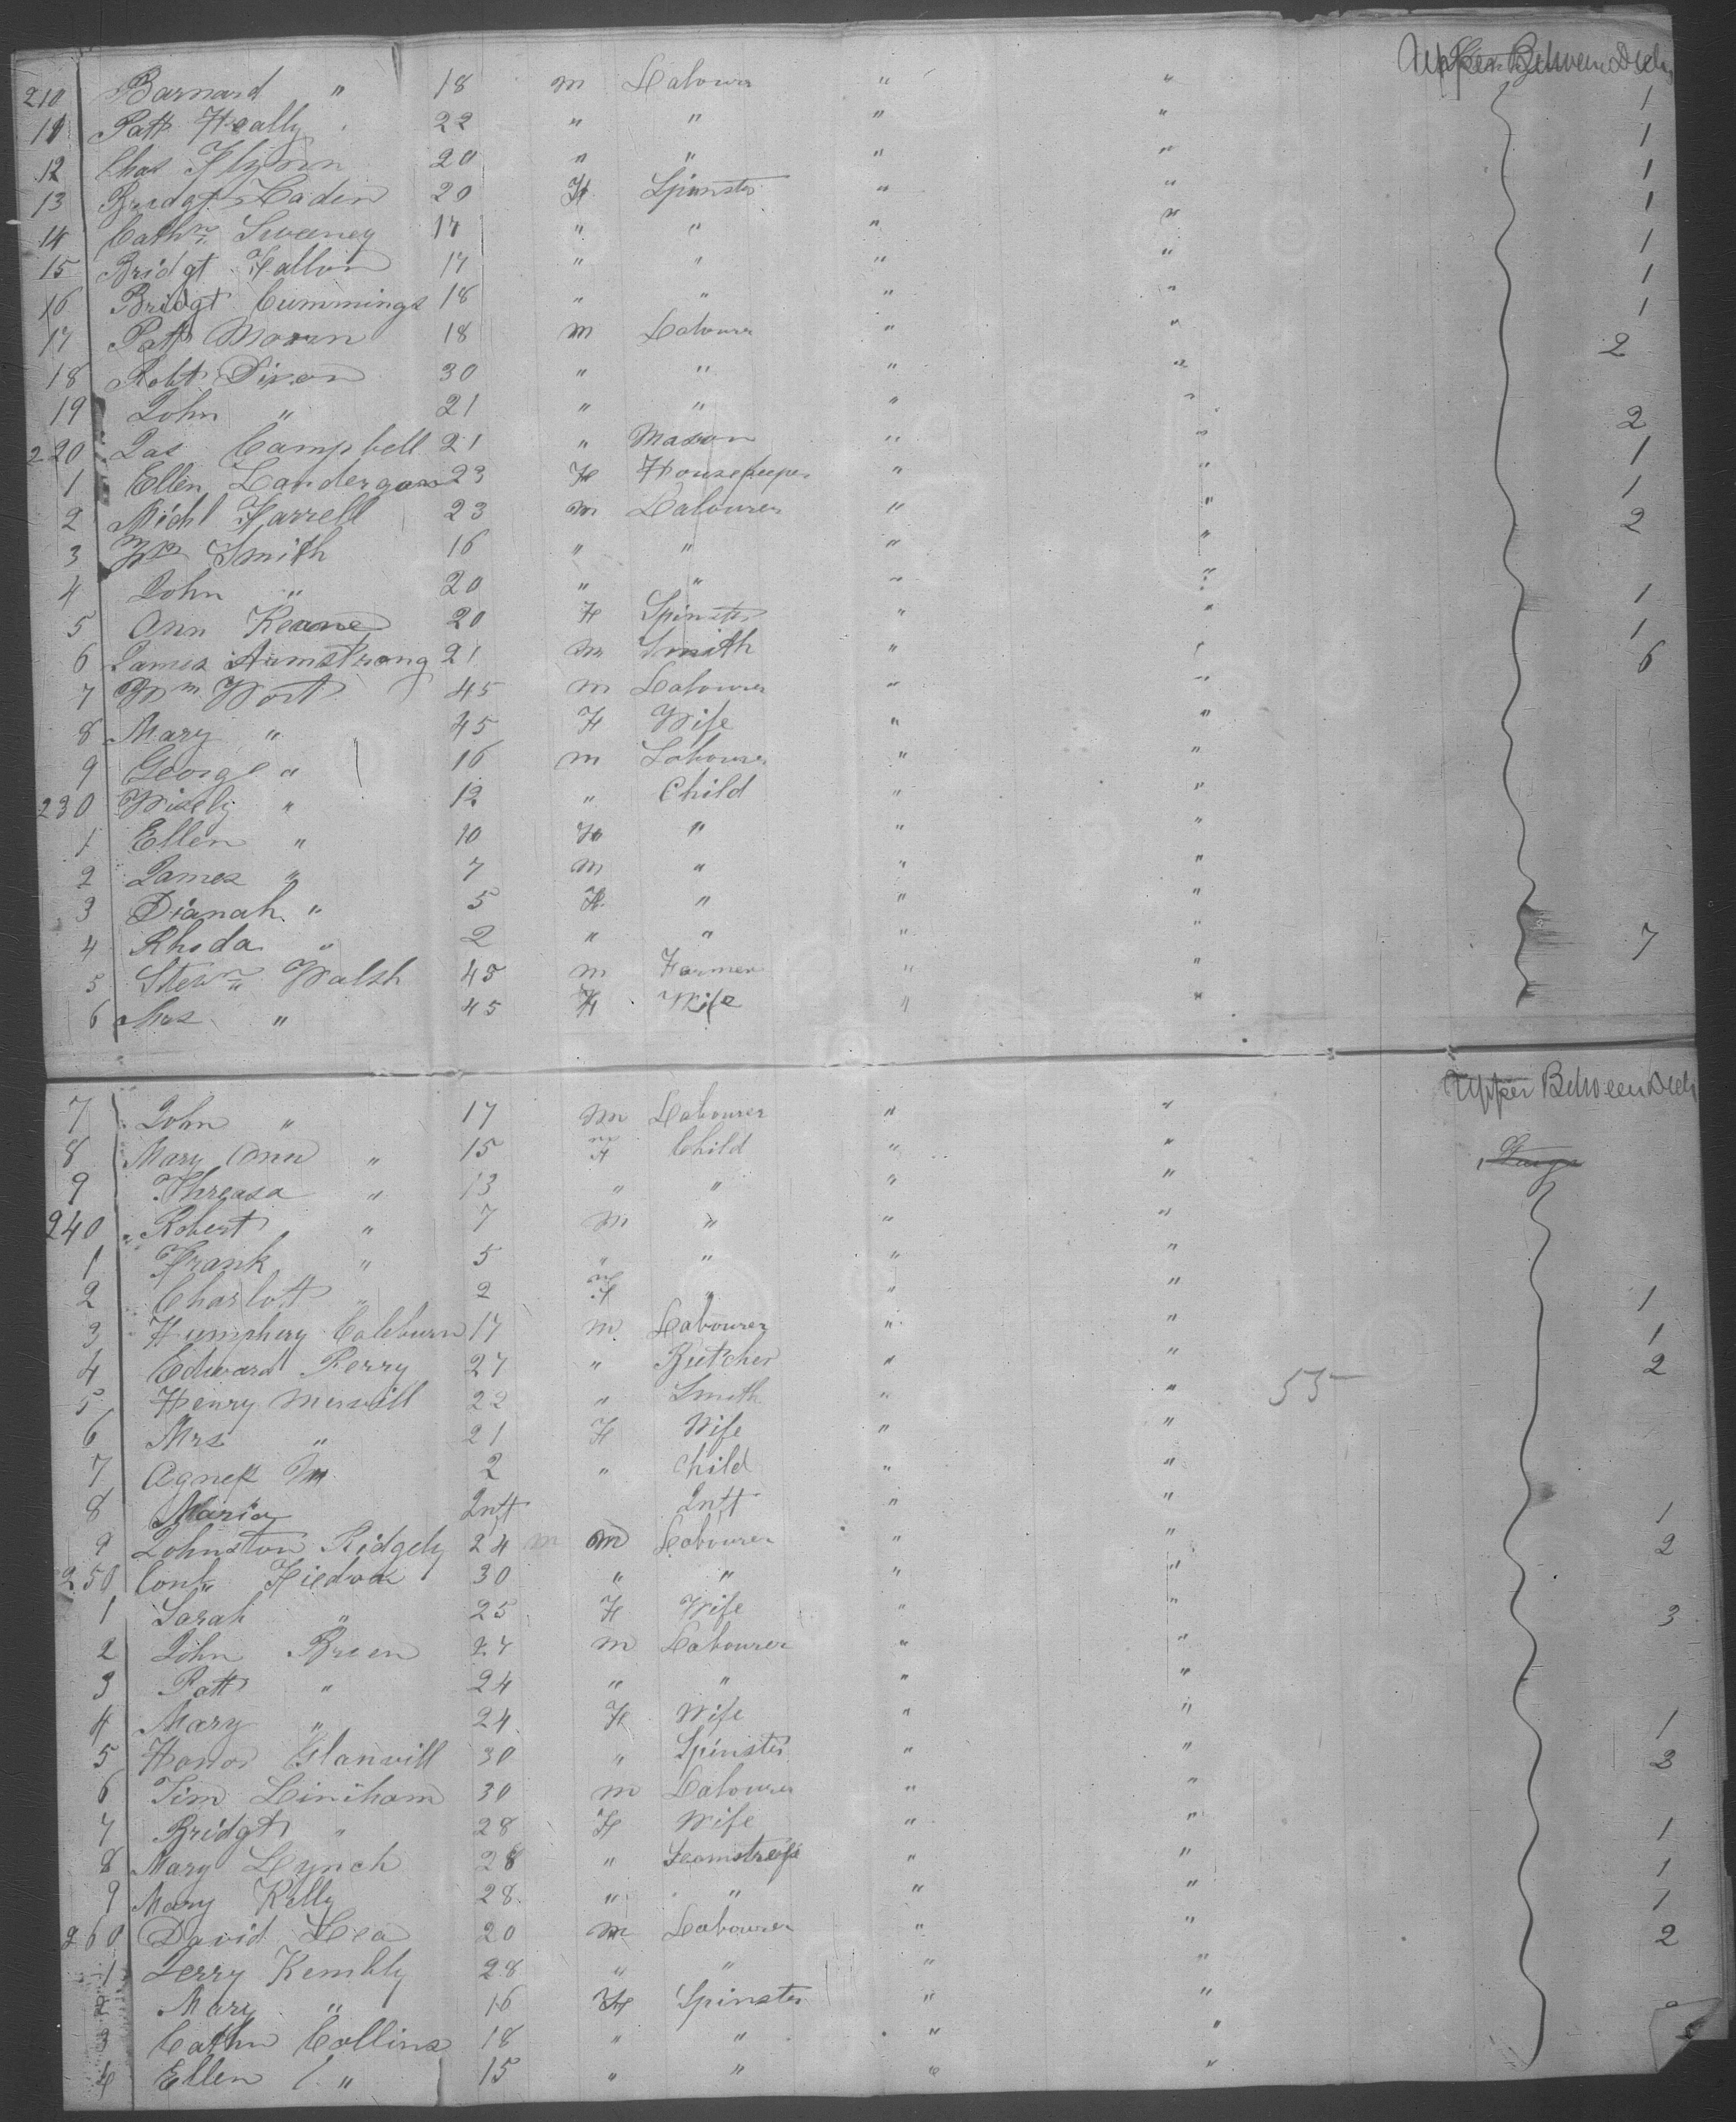 Upper Between Decks
210 Barnard " 18 m Labourer " " 1
11 Patk Heally 22 " " " " 1
12 Chas Flynn 20 " " " " 1
13 Bridgt Caden 20 F Spinster " " 1
14 Cathn Sweeney 17 " " " " 1
15 Bridgt Fallon 17 " " " " 1
16 Bridgt Cummings 18 " " " " 1
17 Patk Moran 18 m Labourer " "
18 Robt Dixon 30 " " " " 2
19 John " 21 " " " "
220 Jas Campbell 21 " Mason " " 2
1 Ellen Landergan 23 F Housekeeper " " 1
2 Michl Farrell 23 m Labourer " " 1
3 Wm Smith 16 " " " " 2
4 John " 20 " " " "
5 Ann Keane 20 F Spinster " " 1
6 James Armstrong 21 m Smith " " 1
7 Wm Wort 45 m Labourer " " 6
8 Mary " 45 F Wife " "
9 George " 16 m Labourer " "
230 " 12 " Child " "
1 Ellen " 10 F " " "
2 James " 7 m " " "
3 Dianah " 5 F " " "
4 Rhoda " 2 " " " "
5 Walsh 45 m Farmer " " 7
6 Mrs " 45 F Wife " "
Upper Between Decks
7 John " 17 m Labourer " "
8 Mary Ann " 15 F Child " "
9 Threasa " 13 " " " "
240 Robert " 7 m " " "
1 Frank " 5 " " " "
2 Charlott " 2 F " " "
3 Humphery Coleburn 17 m Labourer " " 1
4 Edward Perry 27 " Butcher " " 1
5 Henry 22 " Smith " " 55 2
6 Mrs " 21 F Wife " "
7 Agness 2 " Child " "
8 Maria Inft Inft " "
9 Johnston Ridgely 24 m m Labourer " " 1
250 30 " " " " 2
1 Sarah " 25 F Wife " "
2 John Breen 27 m Labourer " " 3
3 Patk " 24 " " " "
4 Mary " 24 F Wife " "
5 Honor Glanvill 30 " Spinster " " 1
6 Tim Liniham 30 m Labourer " " 2
7 Bridgt " 28 F Wife " "
8 Mary Lynch 28 " Seamstress " " 1
9 Mary Kelly 28 " " " " 1
260 David Lea 20 m Labourer " " 1
1 Jerry Kembly 28 " " " " 2
2 Mary " 16 F Spinster " "
3 Cathn Collins 18 " " " "
4 Ellen " 15 " " " "